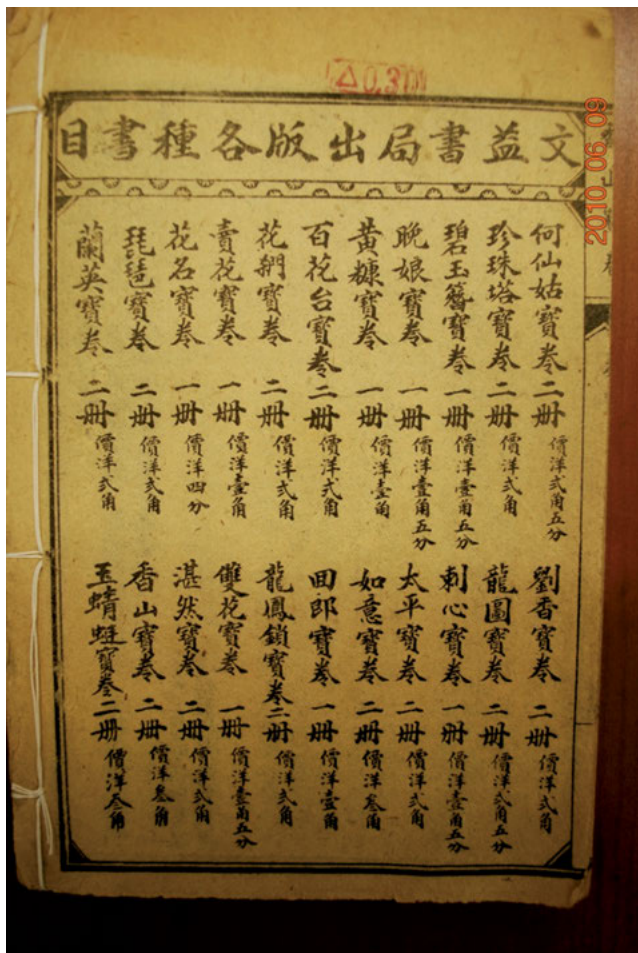 △0.30
2010 06 09
文益書局出版各種書目
何仙姑寶卷 二册 價洋弍角五分
珍珠塔寶卷 二册 價洋弍角
碧玉簪寶卷 一册 價洋壹角五分
晚娘寶卷 一册 價洋壹角五分
黃糠寶卷 一册 價洋壹角
百花台寶卷 二册 價洋弍角
花網寶卷 二册 價洋弍角
賣花寶卷 一册 價洋壹角
花名寶卷 一册 價洋四分
琵琶寶卷 二册 價洋弍角
蘭英寶卷 二册
劉香寶卷 二册 價洋弍角
龍圖寶卷 二册 價洋弍角五分
刺心寶卷 一册 價洋壹角五分
太平寶卷 二册 價洋弍角
如意寶卷 二册 價洋叁角
回郎寶卷 一册 價洋壹角
龍鳳鎖寶卷 二册 價洋弍角
雙花寶卷 一册 價洋壹角五分
湛然寶卷 二册 價洋弍角
香山寶卷 二册 價洋叁角
玉蜻蜓寶卷 二册 價洋叁角